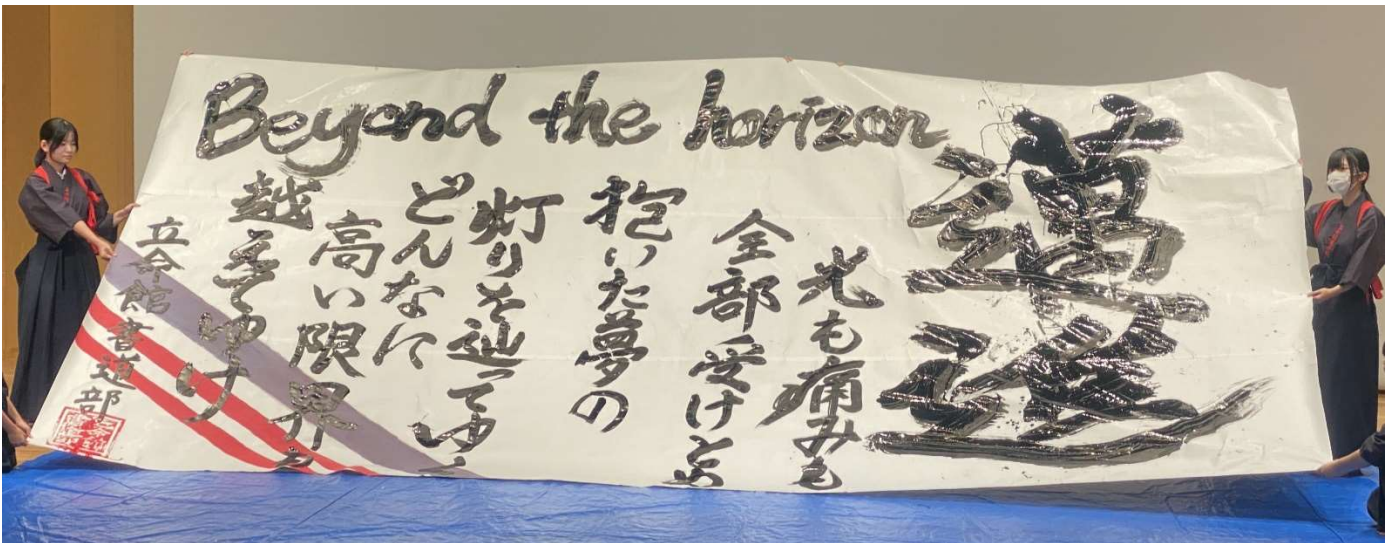 Beyond the horizon
邁進
光も痛みも
全部受け
抱いた夢の
灯りを辿ってゆく
どんなに
高い限界も
越えてゆけ
立命館書道部